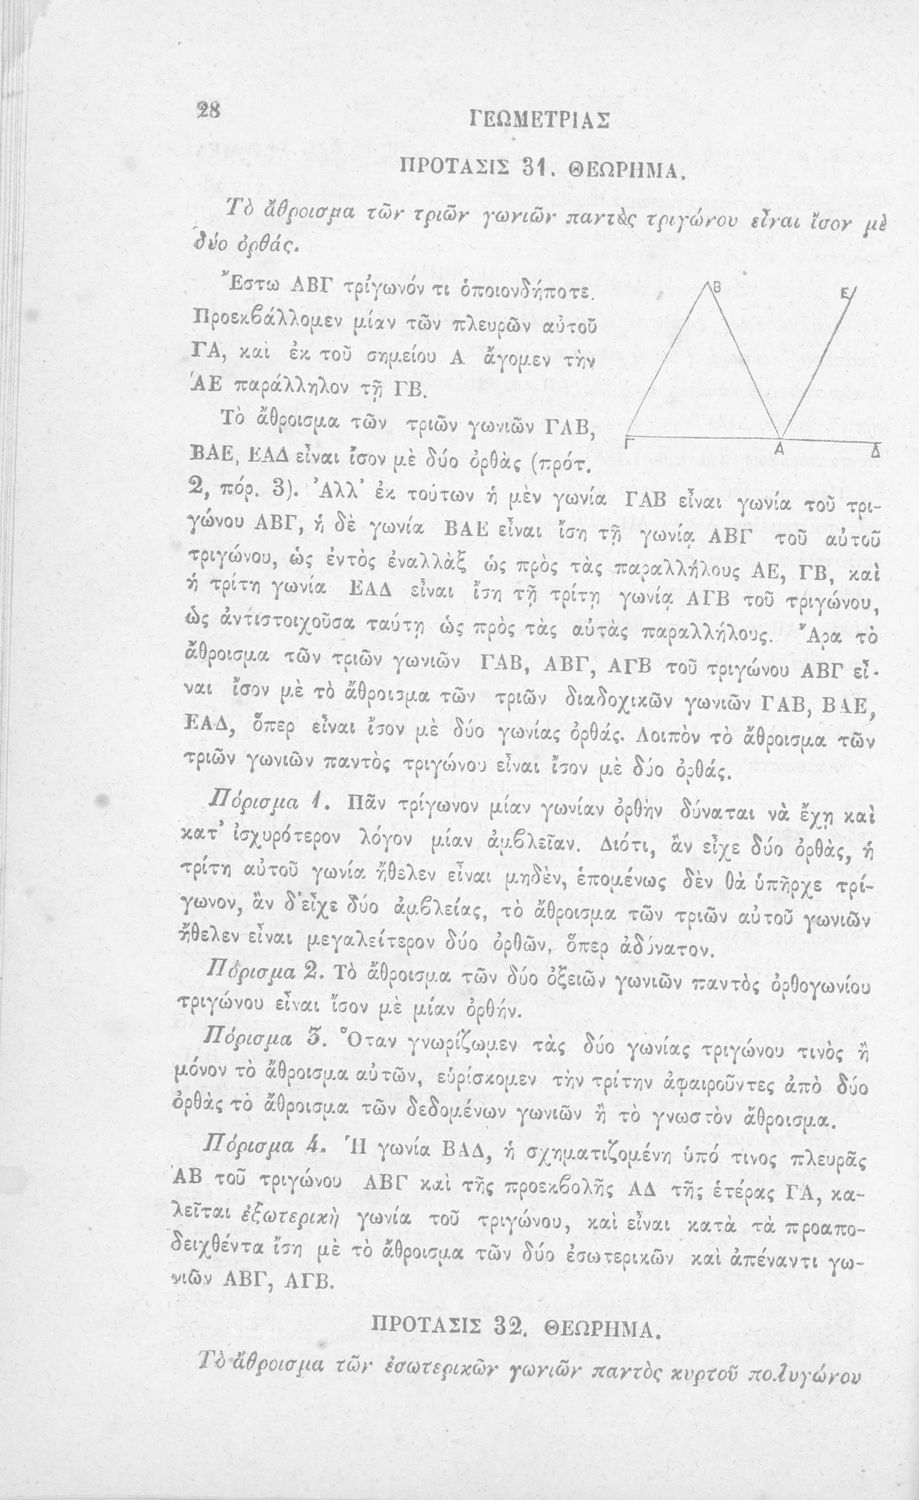 28
ΓΕΩΜΕΤΡΙΑΣ
ΠΡΟΤΑΣΙΣ 31. ΘΕΩΡΗΜΑ.
Τὸ ἄθροισμα τῶν τριῶν γωνιῶν παντὸς τριγώνου εἶναι ἴσον μὲ
δύο ὀρθάς.
Ἔστω ΑΒΓ τρίγωνόν τι ὁποιονδήποτε.
Προεκβάλλομεν μίαν τῶν πλευρῶν αὐτοῦ
ΓΑ, καὶ ἐκ τοῦ σημείου Α ἄγομεν τὴν
ΑΕ παράλληλον τῇ ΓΒ.
Β
Ε
Γ
Α
Δ
Τὸ ἄθροισμα τῶν τριῶν γωνιῶν ΓΑΒ,
ΒΑΕ, ΕΑΔ εἶναι ἴσον μὲ δύο ὀρθὰς (πρότ.
2, πόρ. 3). Ἀλλ' ἐκ τούτων ἡ μὲν γωνία ΓΑΒ εἶναι γωνία τοῦ τρι-
γώνου ΑΒΓ, ἡ δὲ γωνία ΒΑΕ εἶναι ἴση τῇ γωνίᾳ ΑΒΓ τοῦ αὐτοῦ
τριγώνου, ὡς ἐντὸς ἐναλλὰξ ὡς πρὸς τὰς παραλλήλους ΑΕ, ΓΒ, καὶ
ἡ τρίτη γωνία ΕΑΔ εἶναι ἴση τῇ τρίτῃ γωνίᾳ ΑΓΒ τοῦ τριγώνου,
ὡς ἀντιστοιχοῦσα ταύτῃ ὡς πρὸς τὰς αὐτὰς παραλλήλους. Ἄρα τὸ
ἄθροισμα τῶν τριῶν γωνιῶν ΓΑΒ, ΑΒΓ, ΑΓΒ τοῦ τριγώνου ΑΒΓ εἶ-
ναι ἴσον μὲ τὸ ἄθροισμα τῶν τριῶν διαδοχικῶν γωνιῶν ΓΑΒ, ΒΑΕ,
ΕΑΔ, ὅπερ εἶναι ἴσον μὲ δύο γωνίας ὀρθάς. Λοιπὸν τὸ ἄθροισμα τῶν
τριῶν γωνιῶν παντὸς τριγώνου εἶναι ἴσον μὲ δύο ὀρθάς.
Πόρισμα 1. Πᾶν τρίγωνον μίαν γωνίαν ὀρθὴν δύναται νὰ ἔχῃ καὶ
κατ' ἰσχυρότερον λόγον μίαν ἀμβλεῖαν. Διότι, ἂν εἶχε δύο ὀρθὰς, ἡ
τρίτη αὐτοῦ γωνία ἤθελεν εἶναι μηδὲν, ἑπομένως δὲν θὰ ὑπῆρχε τρί-
γωνον, ἂν δ' εἶχε δύο ἀμβλείας, τὸ ἄθροισμα τῶν τριῶν αὐτοῦ γωνιῶν
ἤθελεν εἶναι μεγαλείτερον δύο ὀρθῶν, ὅπερ ἀδύνατον.
Πόρισμα 2. Τὸ ἄθροισμα τῶν δύο ὀξειῶν γωνιῶν παντὸς ὀρθογωνίου
τριγώνου εἶναι ἴσον μὲ μίαν ὀρθήν.
Πόρισμα 3. Ὅταν γνωρίζωμεν τὰς δύο γωνίας τριγώνου τινὸς ἢ
μόνον τὸ ἄθροισμα αὐτῶν, εὑρίσκομεν τὴν τρίτην ἀφαιροῦντες ἀπὸ δύο
ὀρθὰς τὸ ἄθροισμα τῶν δεδομένων γωνιῶν ἢ τὸ γνωστὸν ἄθροισμα.
Πόρισμα 4. Ἡ γωνία ΒΑΔ, ἡ σχηματιζομένη ὑπό τινος πλευρᾶς
ΑΒ τοῦ τριγώνου ΑΒΓ καὶ τῆς προεκβολῆς ΑΔ τῆς ἑτέρας ΓΑ, κα-
λεῖται ἐξωτερικὴ γωνία τοῦ τριγώνου, καὶ εἶναι κατὰ τὰ προαπο-
δειχθέντα ἴση μὲ τὸ ἄθροισμα τῶν δύο ἐσωτερικῶν καὶ ἀπέναντι γω-
νιῶν ΑΒΓ, ΑΓΒ.
ΠΡΟΤΑΣΙΣ 32. ΘΕΩΡΗΜΑ.
Τὸ ἄθροισμα τῶν ἐσωτερικῶν γωνιῶν παντὸς κυρτοῦ πολυγώνου